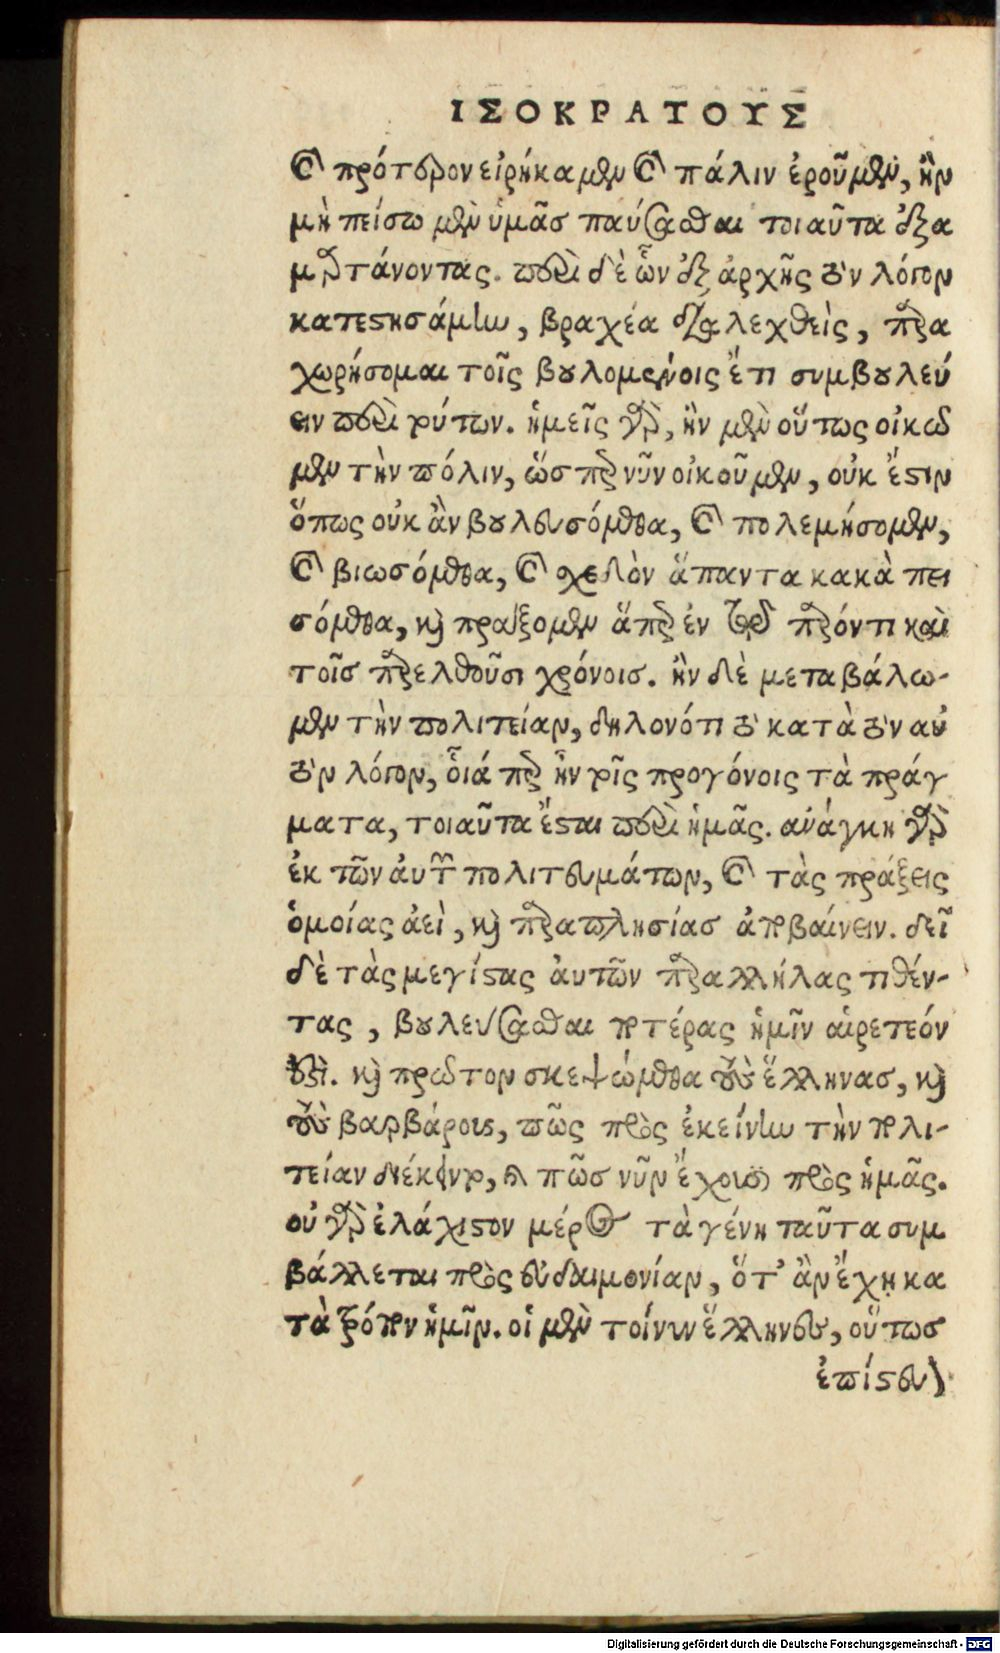 ΙΣΟΚΡΑΤΟΥΣ
καὶ πρότερον εἰρήκαμεν καὶ πάλιν ἐροῦμεν, ἢν
μὴ πείσωμεν ὑμᾶσ παύσασθαι τοιαῦτα ἐξα
μαρτάνοντας. περὶ δὲ ὧν ἐξ ἀρχῆς τὸν λόγον
κατεστησάμην, βραχέα διαλεχθεὶς, παρα
χωρήσομαι τοῖς βουλομένοις ἔτι συμβουλεύ
ειν περὶ τούτων. ἡμεῖς γὰρ, ἢν μὲν οὕτως οἰκῶ
μεν τὴν πόλιν, ὥσπερ νῦν οἰκοῦμεν, οὐκ ἔστιν
ὅπως οὐκ ἂν βουλευσόμεθα, καὶ πολεμήσομεν,
καὶ βιωσόμεθα, καὶ σχεδὸν ἅπαντα κακὰ πει
σόμεθα, καὶ πράξομεν ἅπερ ἐν τῷ παρόντι καὶ
τοῖσ παρελθοῦσι χρόνοισ. ἢν δὲ μεταβάλω-
μεν τὴν πολιτείαν, δηλονότι τὸ κατὰ τὸν αὐ
τὸν λόγον, οἷά περ ἦν τοῖς προγόνοις τὰ πράγ
ματα, τοιαῦτα ἔσται περὶ ἡμᾶς. ανάγκη γὰρ
ἐκ τῶν ἀυτῶν πολιτευμάτων, καὶ τὰς πράξεις
ὁμοίας ἀεὶ, καὶ παραπλησίασ ἀποβαίνειν. δεῖ
δὲ τὰς μεγίστας ἀυτῶν παραλλήλας τιθέν-
τας, βουλεύσασθαι ποτέρας ἡμῖν αἱρετεόν
ἐστὶ. καὶ πρῶτον σκεψώμεθα τοὺς ἕλληνασ, καὶ
τοὺς βαρβάρους, πῶς πρὸς ἐκείνην τὴν πολι-
τείαν διέκειντο, καὶ πῶσ νῦν ἔχουσι πρὸς ἡμᾶς.
οὐ γὰρ ἐλάχιστον μέρος τὰ γένη ταῦτα συμ
βάλλεται πρὸς εὐδαιμονίαν, ὅτ' ἂν ἔχῃ κα
τὰ τρόπον ἡμῖν. οἱ μὲν τοίνυν ἕλληνες, οὕτωσ
ἐπίστευ
Digitalisierung gefördert durch die Deutsche Forschungsgemeinschaft - DFG